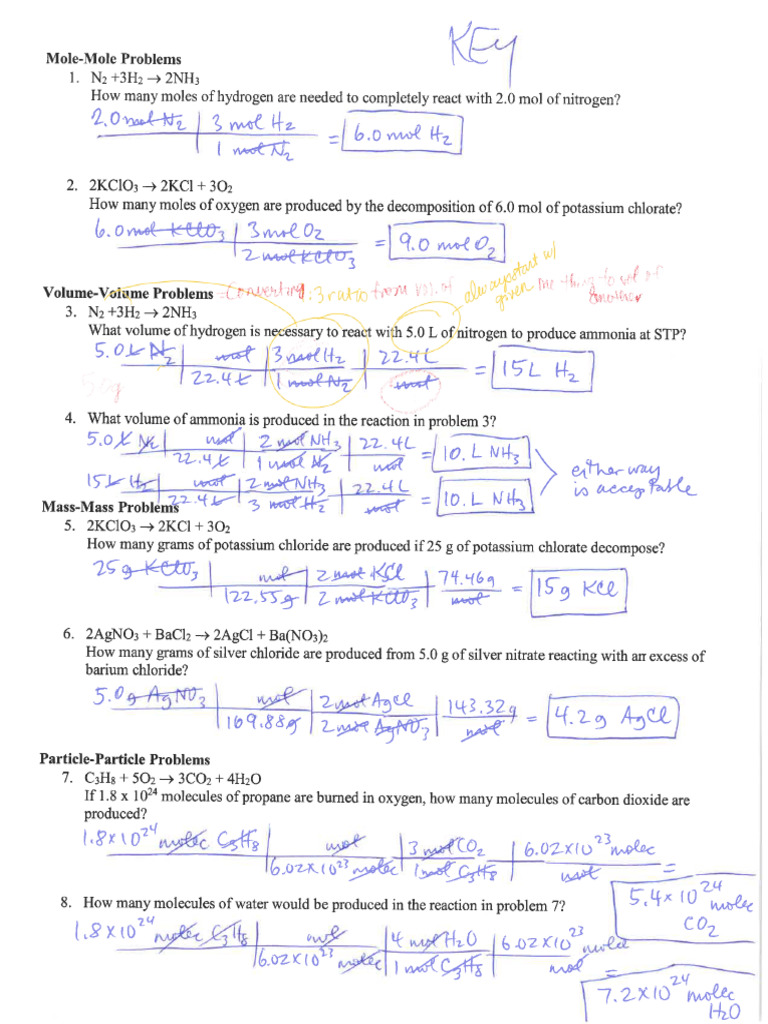 KEY
Mole-Mole Problems
1. N2 +3H2 → 2NH3
How many moles of hydrogen are needed to completely react with 2.0 mol of nitrogen?
2.0 mol N2 | 3 mol H2
1 mol N2 = 6.0 mol H2
2. 2KClO3 → 2KCl + 3O2
How many moles of oxygen are produced by the decomposition of 6.0 mol of potassium chlorate?
6.0 mol KClO3 | 3 mol O2
2 mol KClO3 = 9.0 mol O2
always start w/
given
Volume-Volume Problems = Converting : 3 ratio from vol. of one thing to vol of
another
3. N2 +3H2 → 2NH3
What volume of hydrogen is necessary to react with 5.0 L of nitrogen to produce ammonia at STP?
5.0 L N2 | mol | 3 mol H2 | 22.4 L
22.4 L | 1 mol N2 | mol = 15 L H2
4. What volume of ammonia is produced in the reaction in problem 3?
5.0 L N2 | mol | 2 mol NH3 | 22.4 L
22.4 L | 1 mol N2 | mol = 10. L NH3
15 L H2 | mol | 2 mol NH3 | 22.4 L
22.4 L | 3 mol H2 | mol = 10. L NH3
either way
is acceptable
Mass-Mass Problems
5. 2KClO3 → 2KCl + 3O2
How many grams of potassium chloride are produced if 25 g of potassium chlorate decompose?
25 g KClO3 | mol | 2 mol KCl | 74.46 g
122.55 g | 2 mol KClO3 | mol = 15 g KCl
6. 2AgNO3 + BaCl2 → 2AgCl + Ba(NO3)2
How many grams of silver chloride are produced from 5.0 g of silver nitrate reacting with an excess of
barium chloride?
5.0 g AgNO3 | mol | 2 mol AgCl | 143.32 g
169.88 g | 2 mol AgNO3 | mol = 4.2 g AgCl
Particle-Particle Problems
7. C3H8 + 5O2 → 3CO2 + 4H2O
If 1.8 x 10^24 molecules of propane are burned in oxygen, how many molecules of carbon dioxide are
produced?
1.8 x 10^24 molec C3H8 | mol | 3 mol CO2 | 6.02 x 10^23 molec
6.02 x 10^23 molec | 1 mol C3H8 | mol =
5.4 x 10^24 molec
CO2
8. How many molecules of water would be produced in the reaction in problem 7?
1.8 x 10^24 molec C3H8 | mol | 4 mol H2O | 6.02 x 10^23 molec
6.02 x 10^23 molec | 1 mol C3H8 | mol =
7.2 x 10^24 molec
H2O